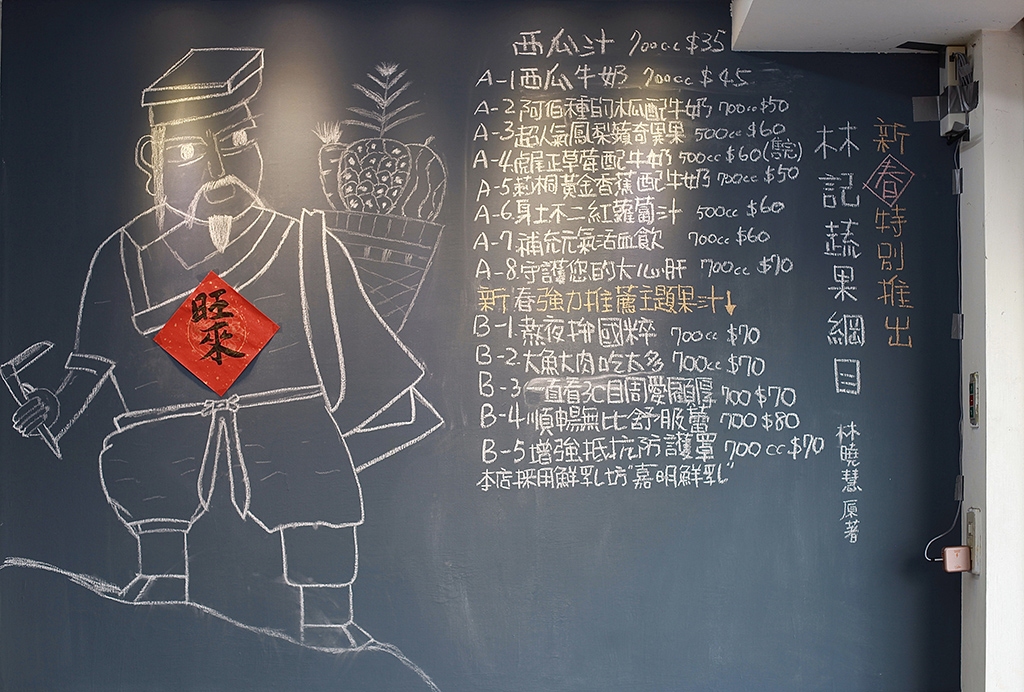 西瓜汁 700cc $35
A-1 西瓜牛奶 700cc $45
A-2 阿伯種的木瓜配牛奶 700cc $50
A-3 超人氣鳳梨獼奇異果 500cc $60
A-4 虎尾正草莓配牛奶 500cc $60(售完)
A-5 莿桐黃金香蕉配牛奶 700cc $50
A-6 身土不二紅蘿蔔汁 500cc $60
A-7 補充元氣活血飲 700cc $60
A-8 守護您的大心肝 700cc $70
新春強力推薦主題果汁↓
B-1 熬夜拚國粹 700cc $70
B-2 大魚大肉吃太多 700cc $70
B-3 一直看3C目周愛顧厚 700 $70
B-4 順暢無比舒服蕾 700 $80
B-5 增強抵抗防護罩 700cc $70
本店採用鮮乳坊"嘉明鮮乳"
新春特別推出
林記蔬果綱目
林曉慧 原著
旺來